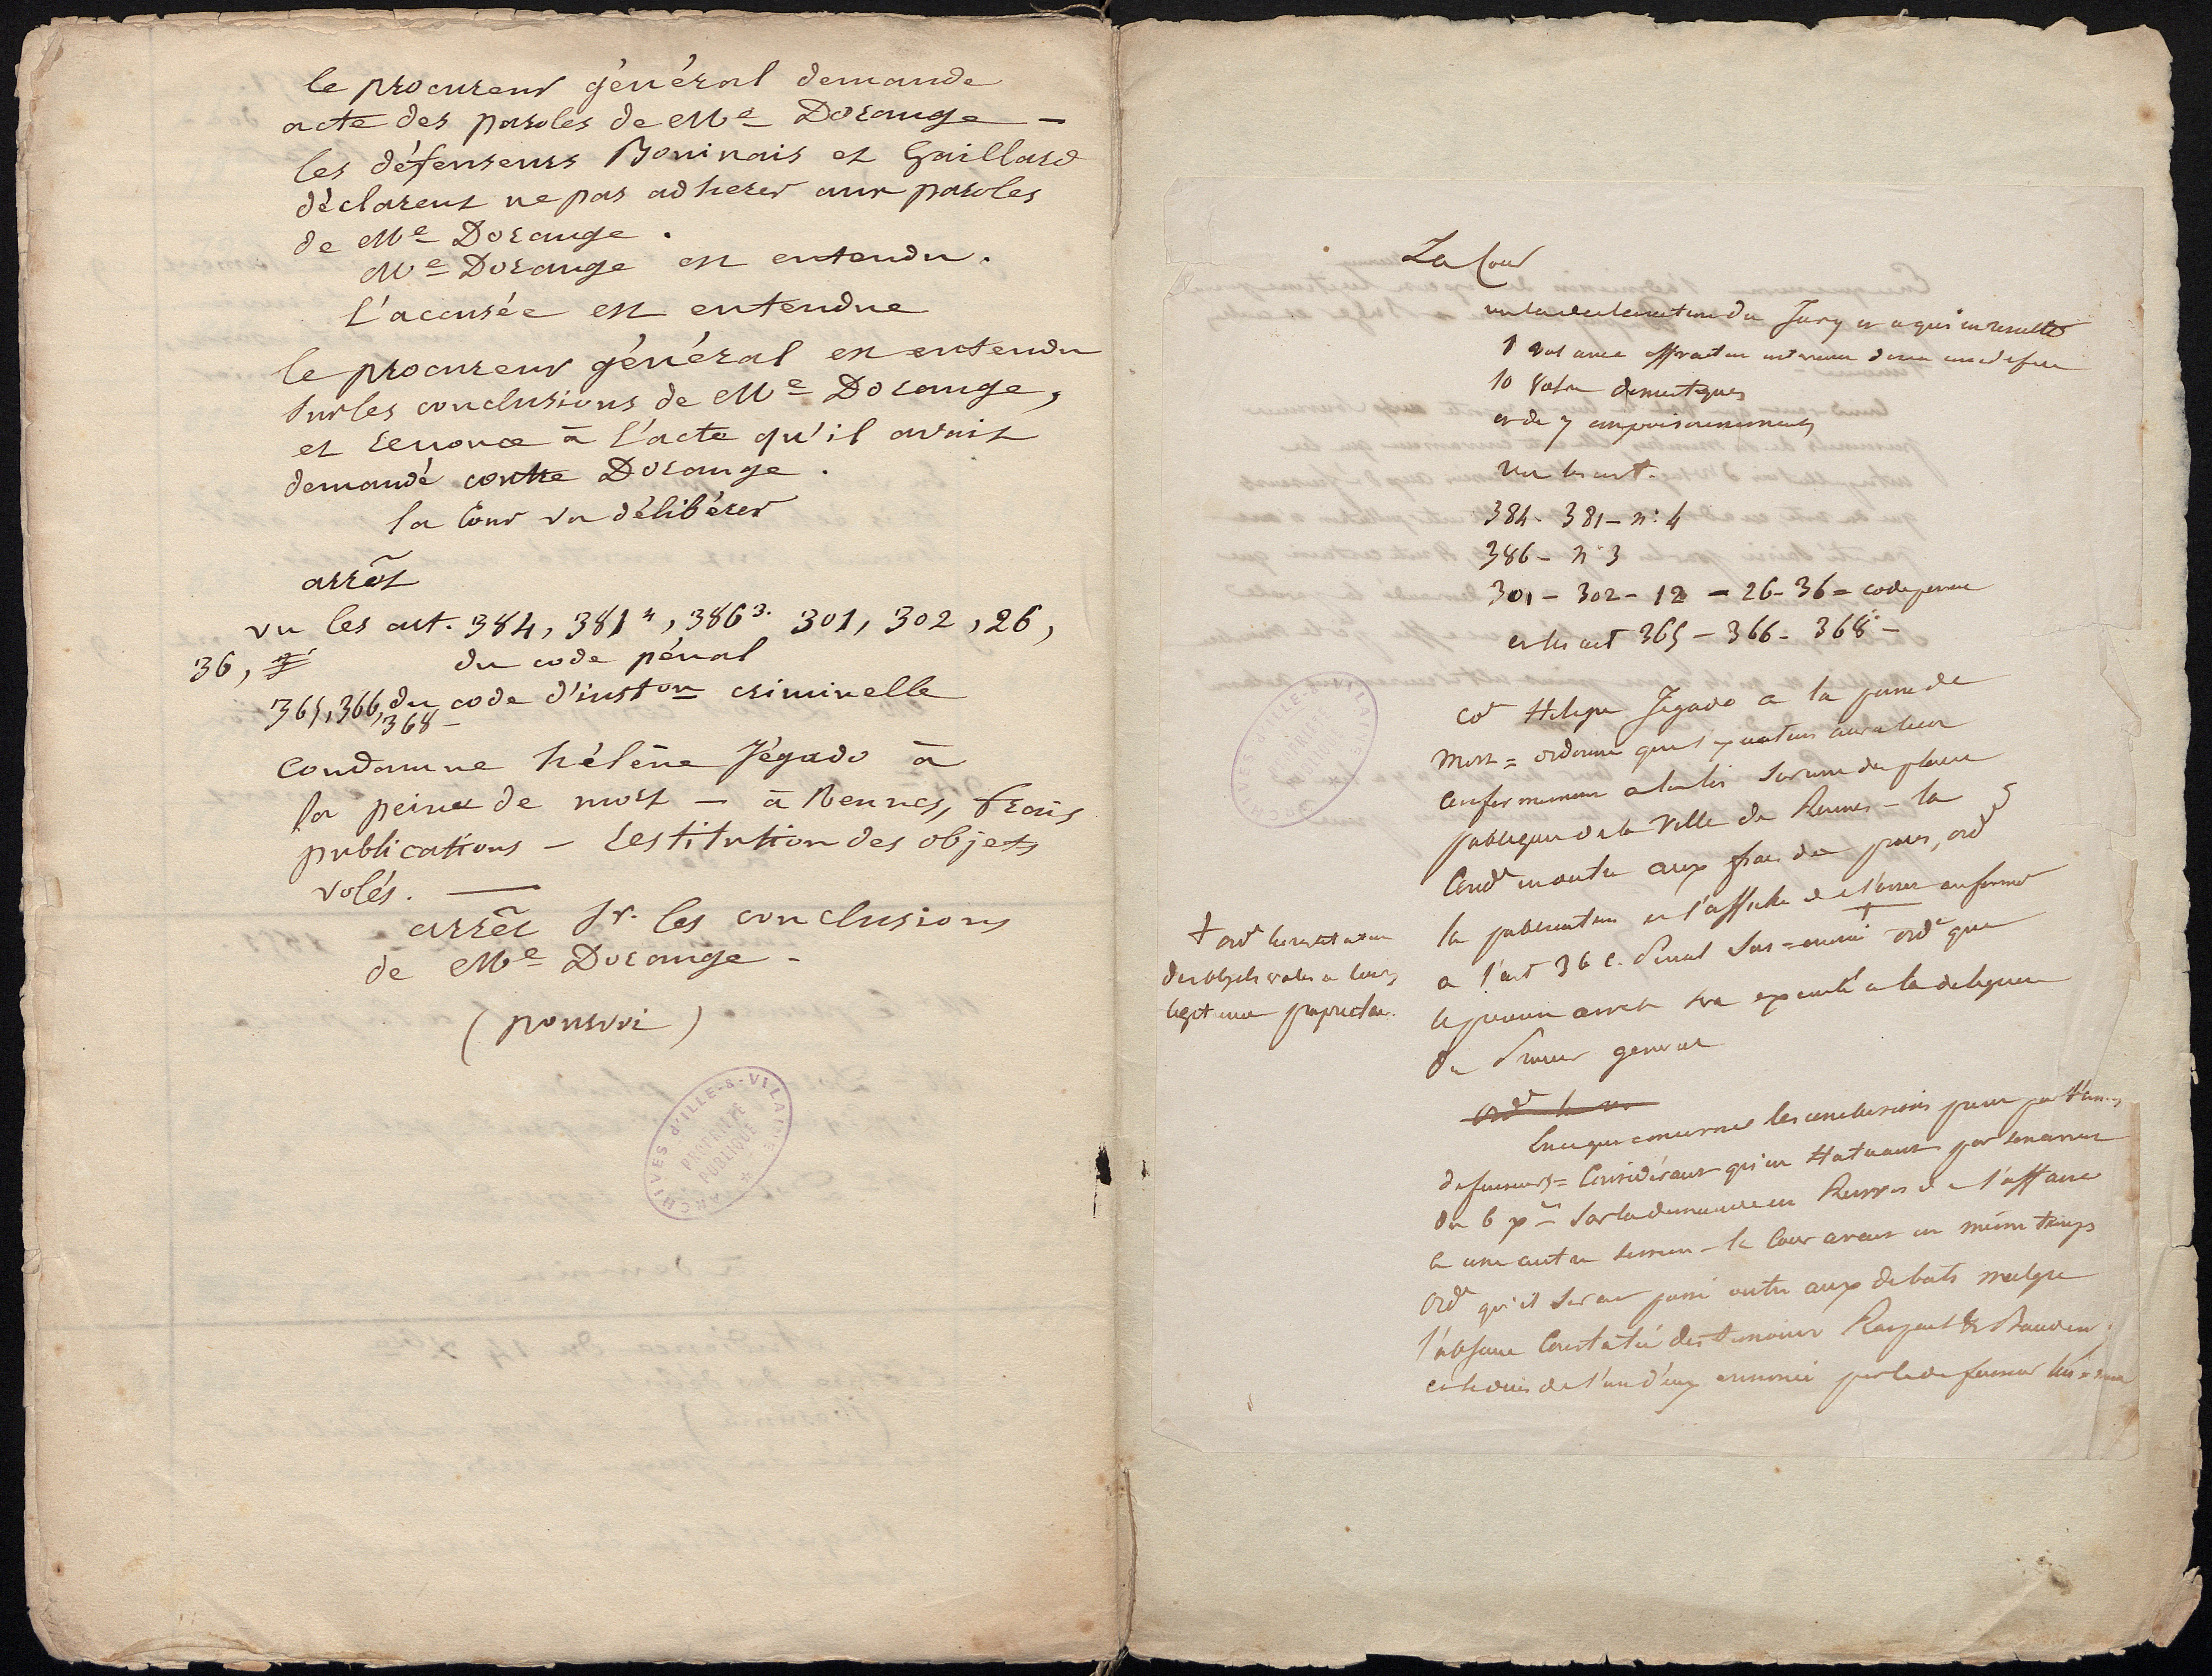 le procureur général demande
acte des paroles de Me Dorange –
les défenseurs Boninais et Gaillard
déclarent ne pas adherer aux paroles
de Me Dorange.
Me Dorange est entendu.
l'accusée est entendue
le procureur général est entendu
sur les conclusions de Me Dorange,
et renonce à l'acte qu'il avait
demandé contre Dorange.
la Cour va délibérer
arrêt
vu les art. 384, 381 4, 386 3. 301, 302, 26,
36, du code pénal
365, 366, du code d'inston criminelle
368 –
Condamne hélène Jégado à
la peine de mort – à Rennes, frais
publications – restitution des objets
volés. —
arrêt sr. les conclusions
de Me Dorange –
(pourvoi)
ARCHIVES d'ILLE-&-VILAINE
PROPRIÉTÉ
PUBLIQUE
La Cour
vu la declaration du Jury et a qui en resulte
1 vol avec effraction
10 vols domestiques
et de 7 empoisonnements
vu les art.
384 – 381 – n: 4
386 – n: 3
301 – 302 – 12 – 26 – 36 = code penal
et les art 365 – 366 – 368 –
ARCHIVES d'ILLE-&-VILAINE
PROPRIÉTÉ
PUBLIQUE
Cod Helene Jegado a la peine de
Mort = ordonne que l'execution aura lieu
Conformement a la loi sur une des places
publiques de la Ville de Rennes – la
Cond en outre aux frais du proces, ord
la publication et l'affiche de l'arret conforme
a l'art 36 c. Penal ord que
le present arret sera executé a la diligence
du general
+ ord la restitution
des objets volés a leurs
legitimes proprietaires.
En ce qui concerne les conclusions prises par l'un des
defenseurs = Considérant qu'en statuant par son arret
du 6 Xre sur la demande en Renvoi de l'affaire
a une autre session – la Cour avait en même temps
Ord qu'il serait passé outre aux debats malgre
l'absence Constatée des temoins Raspail & Baudin
et le deces de l'un d'eux annoncé par le defenseur lui-meme